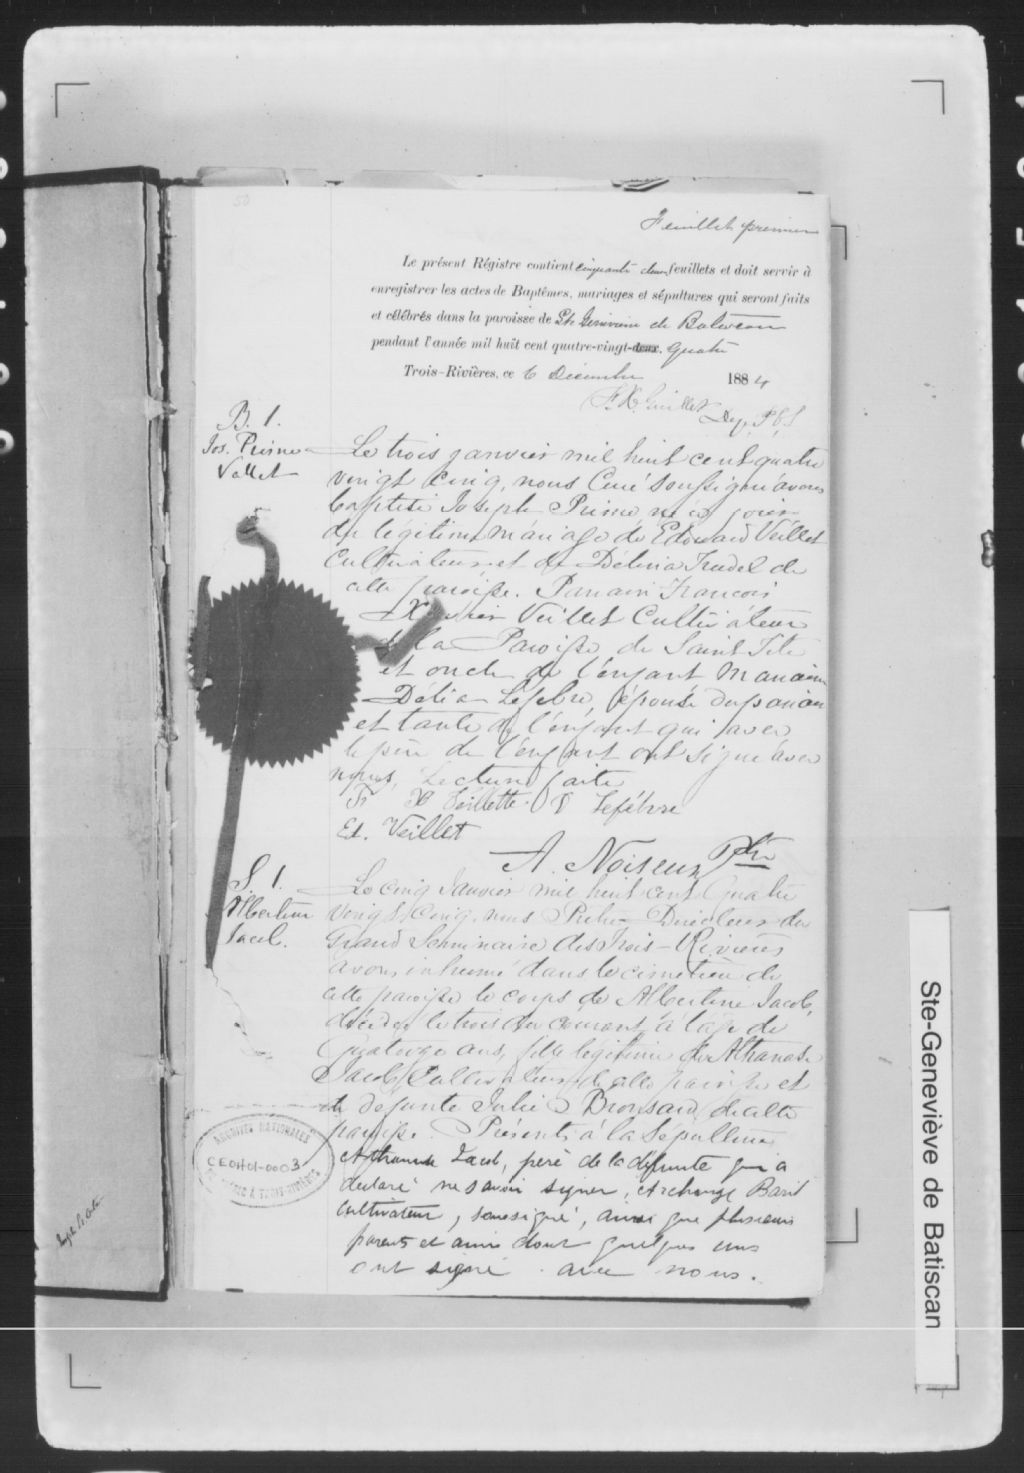 50
Feuillet premier
Le présent Régistre contient cinquante deux feuillets et doit servir à
enregistrer les actes de Baptêmes, mariages et sépultures qui seront faits
et célébrés dans la paroisse de Ste Genevieve de Batiscan
pendant l'année mil huit cent quatre-vingt-deux. Quatre
Trois-Rivières, ce 6 Décembre 1884
F. X. Guillet Dep. P C S
B. 1.
Jos. Prime
Vallet
Le trois janvier mil huit cent quatre
vingt cinq, nous Curé soussigné avons
baptisé Joseph Prime né ce jour
du légitime mariage de Edouard Veillet
Cultivateur et de Délina Trudel de
cette paroisse. Parrain Francois
Xavier Veillet Cultivateur
de la Paroisse de Saint Tite
et oncle de l'enfant Marraine
Délia Lefebre, épouse du parrain
et tante de l'enfant qui avec
le père de l'enfant ont signé avec
nous, Lecture faite
Fr X Veillette D Lefébvre
Ed. Veillet
A. Noiseux Ptre
S. 1.
Albertine
Jacob.
Le cinq Janvier mil huit cent Quatre
vingt cinq, nous Prêtre Directeur du
Grand Séminaire des Trois-Rivières
avons inhumé dans le cimetière de
cette paroisse le corps de Albertine Jacob,
décédée le trois du courant à l'âge de
Quatorze ans, fille légitime de Athanase
Jacob Cultivateur de cette paroisse et
de defunte Julie Brousard de cette
paroisse. Présents à la Sépulture
Athanase Jacob, père de la défunte qui a
declaré ne savoir signer, Archange Baril
cultivateur, soussigné, ainsi que plusieurs
parents et amis dont quelques uns
ont signé avec nous.
ARCHIVES NATIONALES
CE0401-0003
À TROIS-RIVIÈRES
Ste-Geneviève de Batiscan